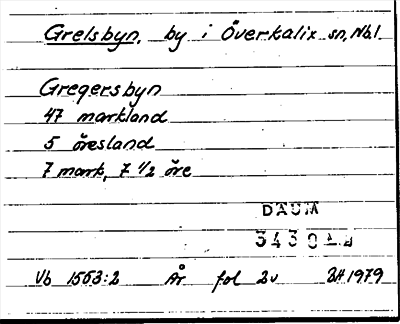 Grelsbyn, by i Överkalix sn, Nb.l.
Gregersbyn
47 markland
5 öresland
7 mark, 7 1/2 öre
DAUM
3430
Vb 1553:2 År fol 2v BH 1979